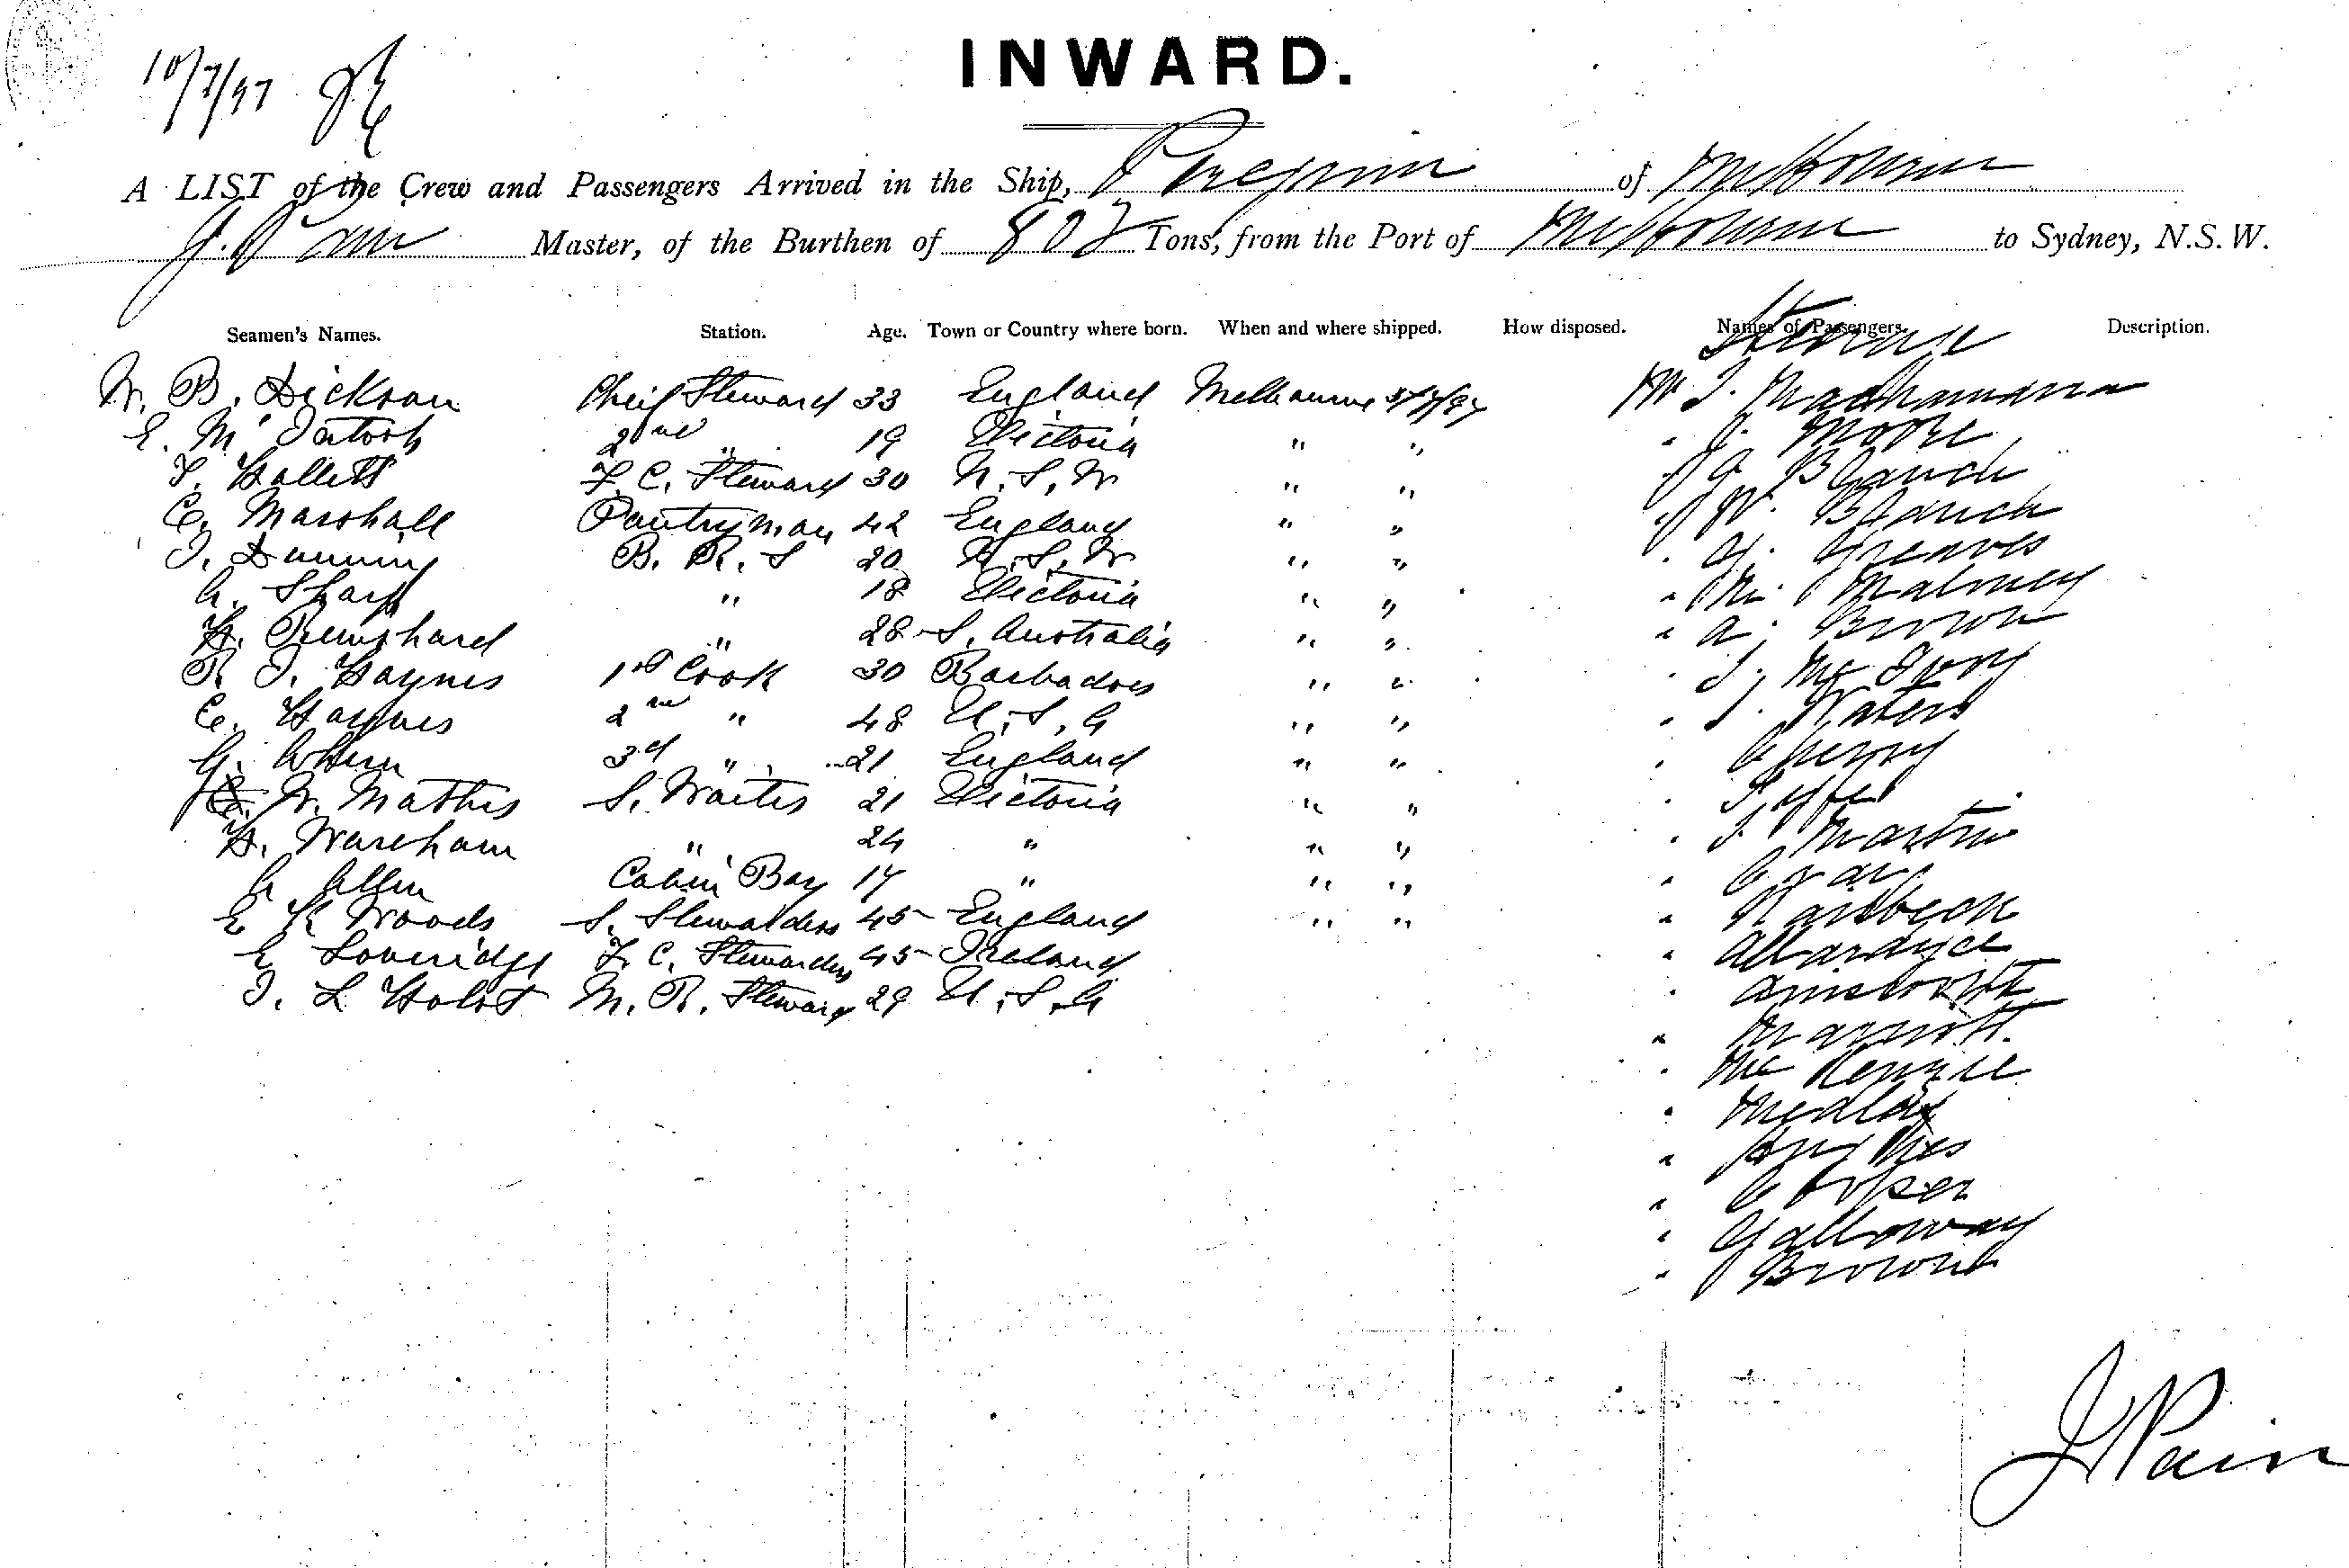 10/7/97
INWARD.
A LIST of the Crew and Passengers Arrived in the Ship, of Melbourne
J. Pain Master, of the Burthen of Tons, from the Port of Melbourne to Sydney, N.S.W.
Seamen's Names. Station. Age. Town or Country where born. When and where shipped. How disposed. Names of Passengers. Description.
Steerage
W. B. Dickson Cheif Steward 33 England Melbourne
E. McIntosh 2nd " 19 Victoria " " " J. Moore
F. Hallett F. C. Steward 30 N. S. W " " Blanch
C. Marshall Pantryman 42 England " " W. Blanch
B. R. S 20 N. S. W " " " Greaves
A. Sharp " 18 Victoria " " " Maloney
H. " 28 S. Australia " " " A. Brown
R. J. Haynes 1st Cook 30 Barbadoes " "
C. Haynes 2nd " 48 U. S. A " " " Waters
3d " 21 England " " " Cherry
W. Mathis S. Waiter 21 Victoria " "
H. Wareham " 24 " " " " Martin
A Allen Cabin Boy 17 " " "
E K Woods S. Stewardess 45 England " "
E Loveridge F. C. Stewardess 45 Ireland " Allardyce
J. L Holst M. R. Steward 29 U. S. A " Ainsworth
" Marriott.
" McKenzie
" Medlay
" Hughes
" Cooper
" Galloway
" Brown
J Pain